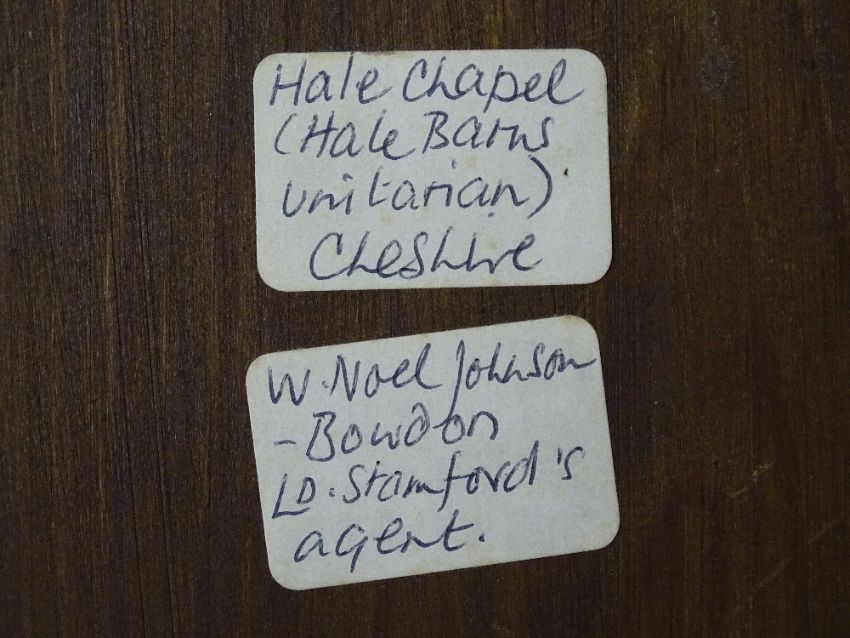 Hale Chapel
(Hale Barns
Unitarian)
Cheshire
W. Noel Johnson
- Bowdon
LD. Stamford's
agent.